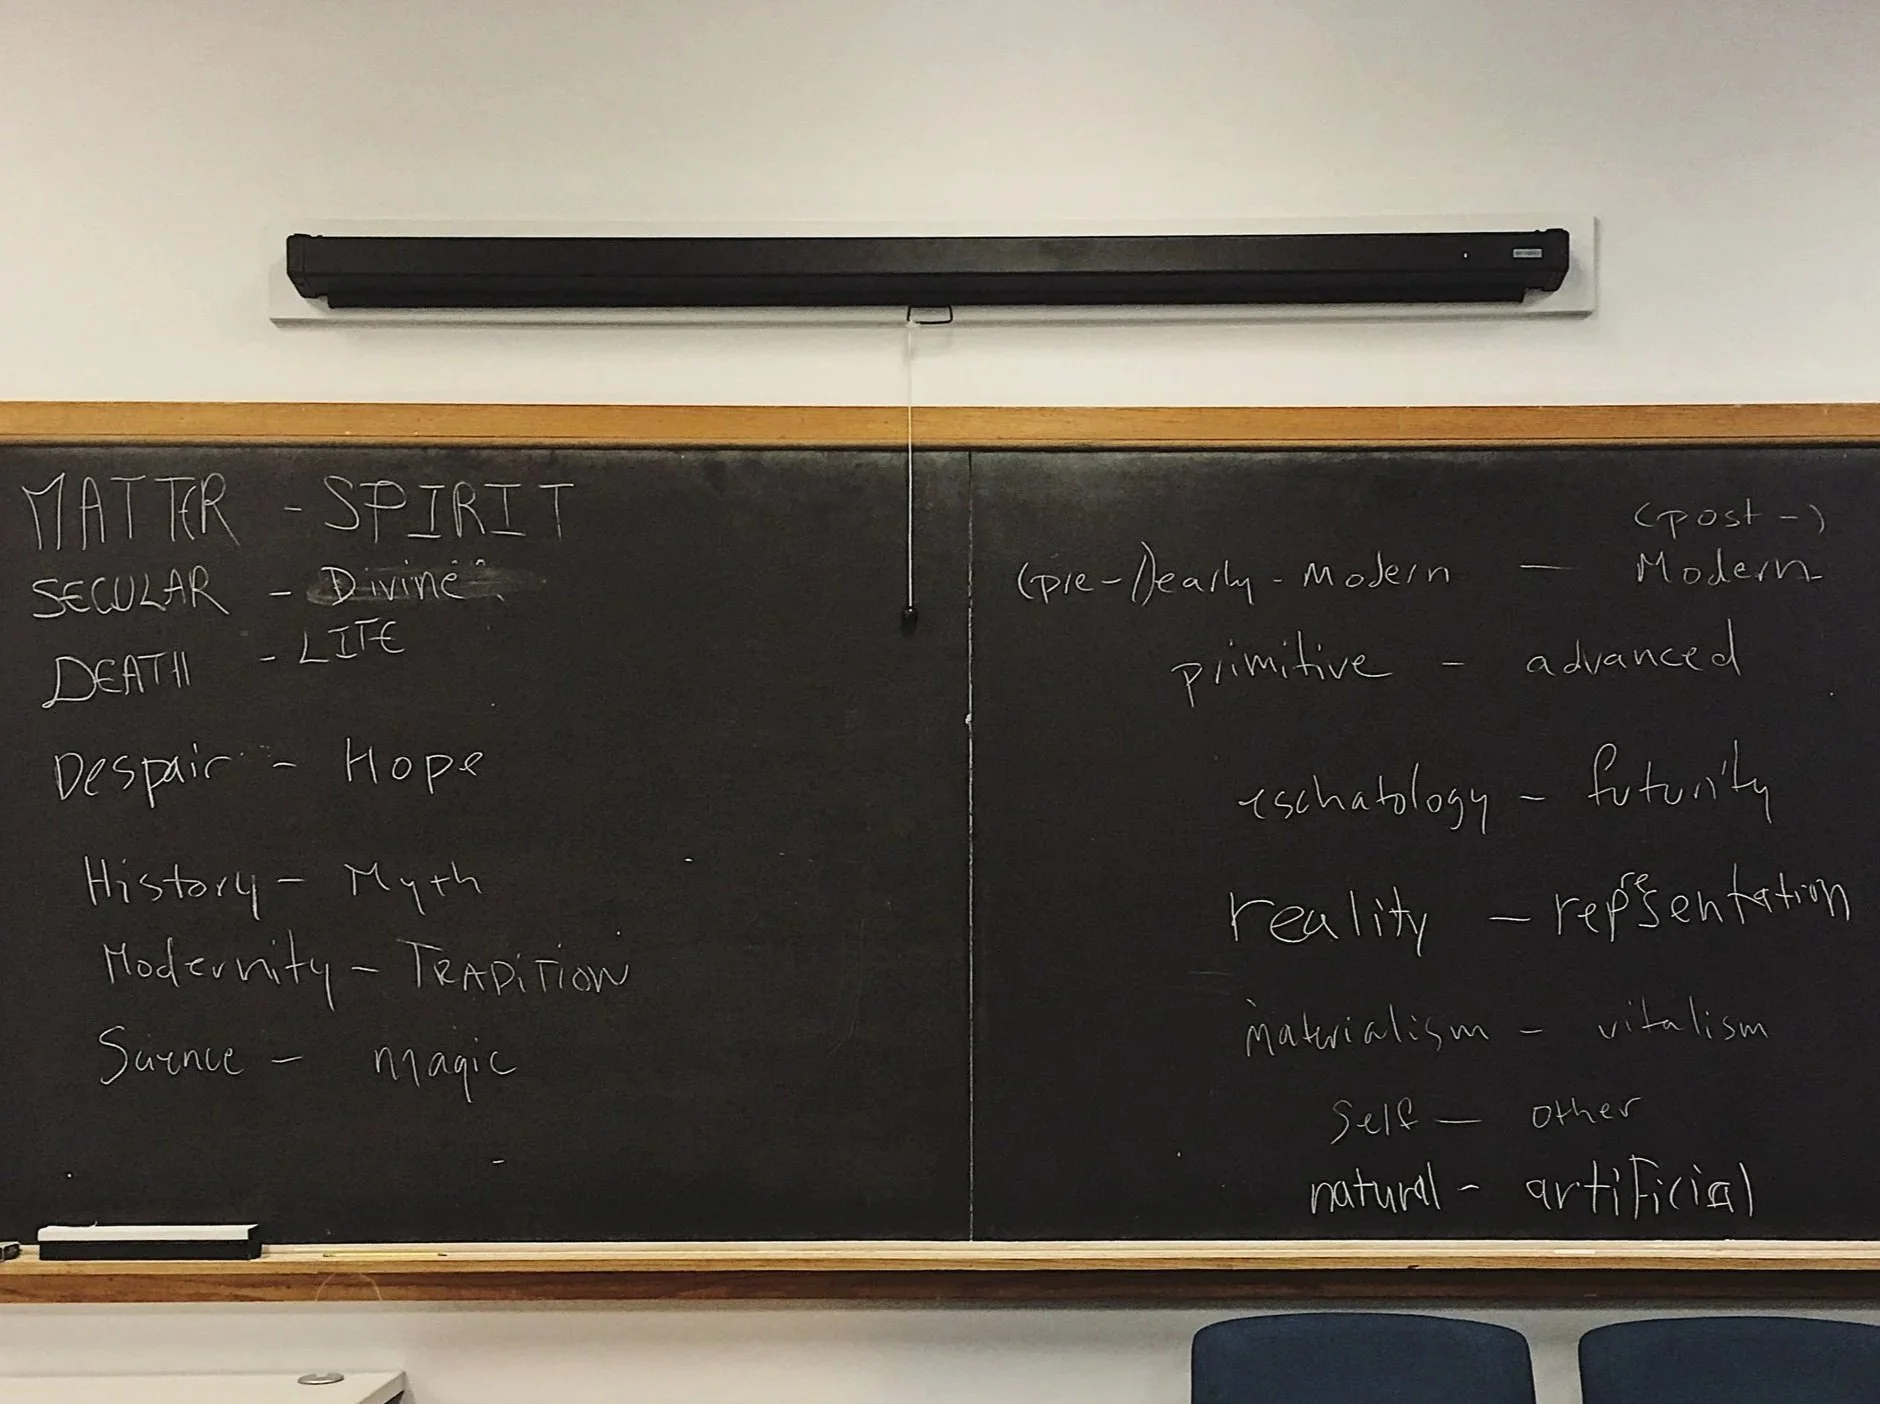 MATTER - SPIRIT
SECULAR - Divine
DEATH - LIFE
Despair - Hope
History - Myth
Modernity - TRADiTiON
Science - magic
(post-)
(pre-)early-modern — Modern
primitive - advanced
eschatology - futurity
reality - representation
materialism - vitalism
Self — other
natural - artificial